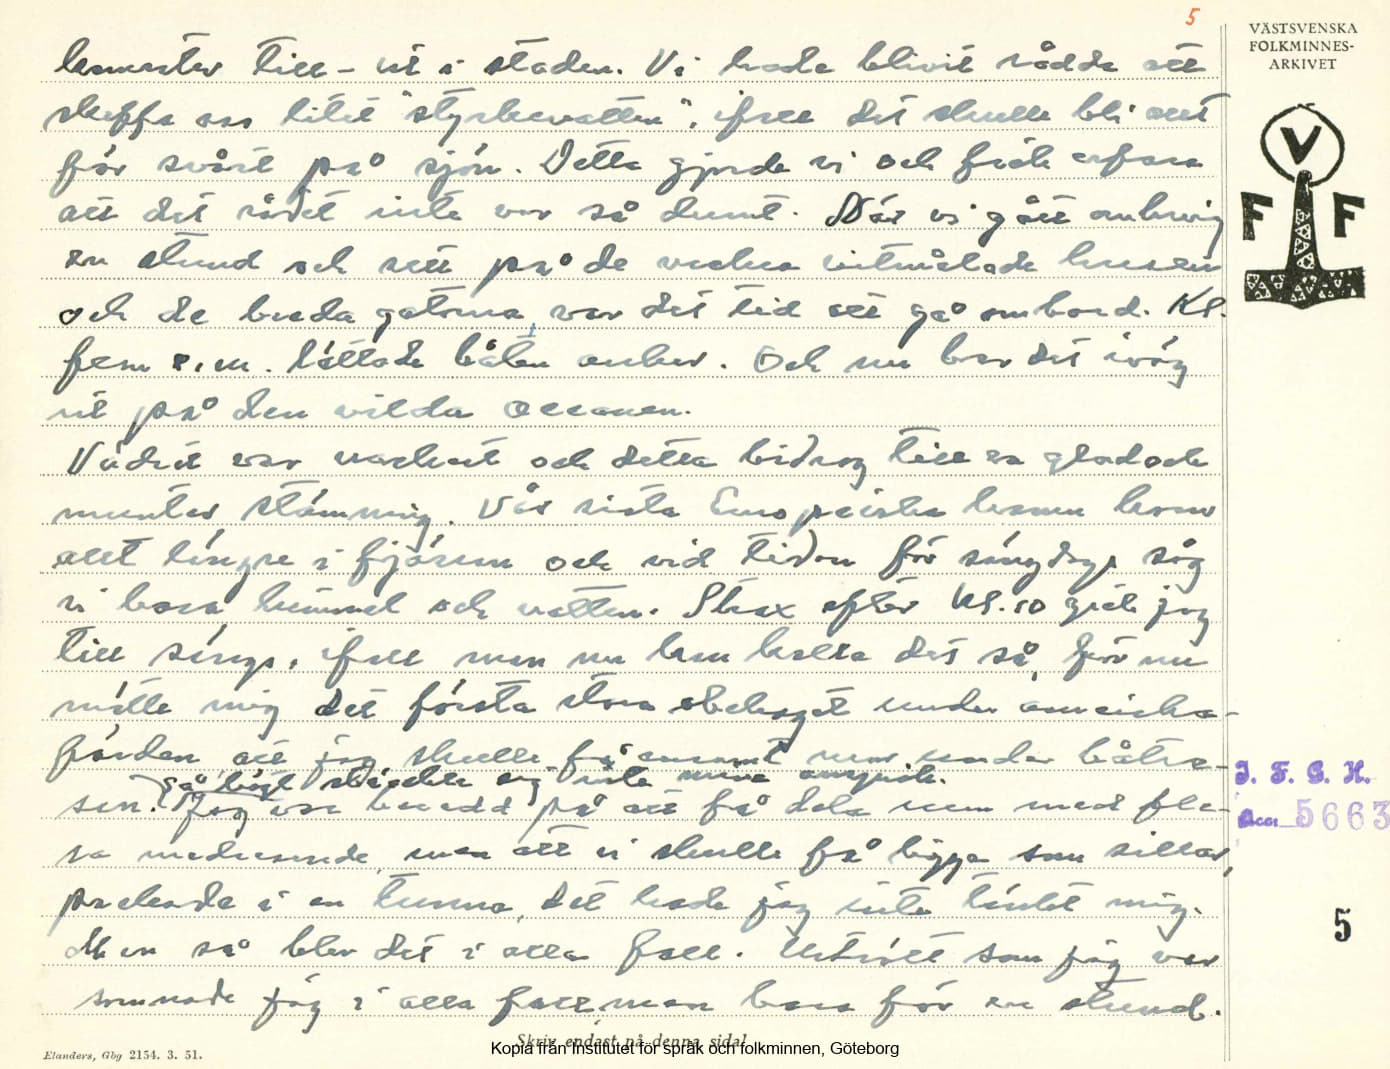 5
VÄSTSVENSKA
FOLKMINNES-
ARKIVET
V
F F
kamrater till - ut i staden. Vi hade blivit rådda att
skaffa oss litet "styrkevatten", ifall det skulle bli allt
för svårt på sjön. Detta gjorde vi och fick erfara
att det rådet inte var så dumt. När vi gått omkring
en stund och sett på de vackra vitmålade husen
och de breda gatorna, var det tid att gå ombord. Kl.
fem e.m. lättade båten ankar. Och nu bar det iväg
ut på den vilda oceanen.
Vädret var vackert och detta bidrog till en glad och
munter stämning. Vår sista Europeiska hamn kom
allt längre i fjärran och vid tiden för sängdags såg
vi bara himmel och vatten. Strax efter kl. 10 gick jag
till sängs, ifall man nu kan kalla det så, för nu
mötte mig det första stora obehaget under amerika-
färden att jag skulle få ensamt rum under båtre-
så högt sträckte sig inte mina anspråk.
san. Jag var beredd på att få dela rum med fle-
ra medresande, men att vi skulle få ligga som sillar,
packade i en tunna, det hade jag inte tänkt mig.
Men så blev det i alla fall. Uttrött som jag var
somnade jag i alla fall, men bara för en stund.
I. F. G. H.
Acc. 5663
5
Skriv endast på denna sida!
Kopia från Institutet för språk och folkminnen, Göteborg
Elanders, Gbg 2154. 3. 51.